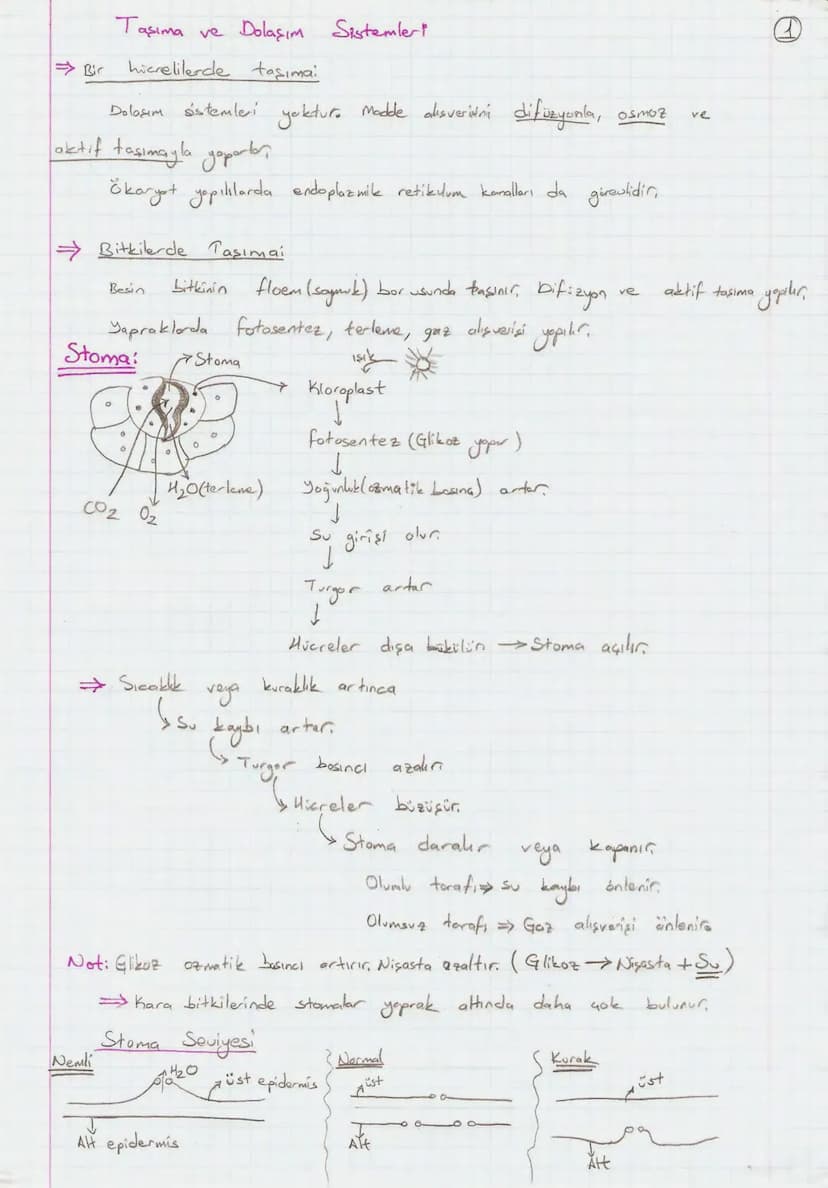 Taşıma ve Dolaşım Sistemleri
1
⇒ Bir hücrelilerde taşıma:
Dolaşım sistemleri yoktur. Madde alışverişini difüzyonla, osmoz ve
aktif taşımayla yaparlar.
Ökaryot yapılılarda endoplazmik retikulum kanalları da görevlidir.
⇒ Bitkilerde Taşıma:
Besin bitkinin floem (soymuk) borusunda taşınır. Difizyon ve aktif taşıma yapılır.
Yapraklarda fotosentez, terleme, gaz alışverişi yapılır.
Stoma:
→ Stoma
Işık
Kloroplast
↓
fotosentez (Glikoz yapar)
↓
Yoğunluk (ozmatik basınç) artar.
↓
Su girişi olur.
↓
Turgor artar
↓
Hücreler dışa bükülür → Stoma açılır.
H₂O (terleme)
CO₂
O₂
⇒ Sıcaklık veya kuraklık artınca
Su kaybı artar.
Turgor basıncı azalır.
Hücreler büzüşür.
Stoma daralır veya kapanır.
Olumlu tarafı ⇒ su kaybı önlenir.
Olumsuz tarafı ⇒ Gaz alışverişi önlenir.
Not: Glikoz ozmatik basıncı artırır. Nişasta azaltır. (Glikoz → Nişasta + Su)
⇒ Kara bitkilerinde stomalar yaprak altında daha çok bulunur.
Stoma Seviyesi
Nemli
H₂O
üst epidermis
Alt epidermis
Normal
üst
Alt
Kurak
üst
Alt